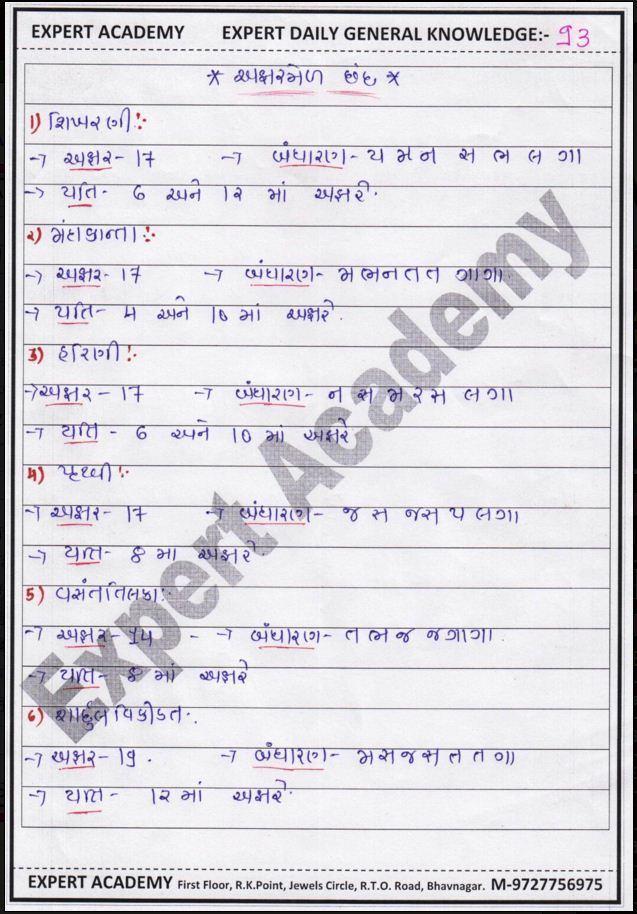 EXPERT ACADEMY EXPERT DAILY GENERAL KNOWLEDGE:- 93
* અક્ષરમેળ છંદ *
1) શિખરણી:-
→ અક્ષર - 17 → બંધારણ - ય મ ન સ ભ લ ગા
→ યતિ - 6 અને 12 માં અક્ષરે.
2) મંદાક્રાન્તા:-
→ અક્ષર - 17 → બંધારણ - મ ભ ન ત ત ગાગા.
→ યતિ - 4 અને 10 માં અક્ષરે.
3) હરિણી:-
→ અક્ષર - 17 → બંધારણ - ન સ મ ર સ લ ગા
→ યતિ - 6 અને 10 માં અક્ષરે
4) પૃથ્વી:-
→ અક્ષર - 17 → બંધારણ - જ સ જ સ ય લ ગા
→ યતિ - 8 માં અક્ષરે
5) વસંતતિલકા:-
→ અક્ષર - 14 - → બંધારણ - ત ભ જ જ ગાગા
→ યતિ - 8 માં અક્ષરે
6) શાર્દુલવિક્રીડિત:.
→ અક્ષર - 19. → બંધારણ - મ સ જ સ ત ત ગા
→ યતિ - 12 માં અક્ષરે.
Expert Academy
EXPERT ACADEMY First Floor, R.K.Point, Jewels Circle, R.T.O. Road, Bhavnagar. M-9727756975